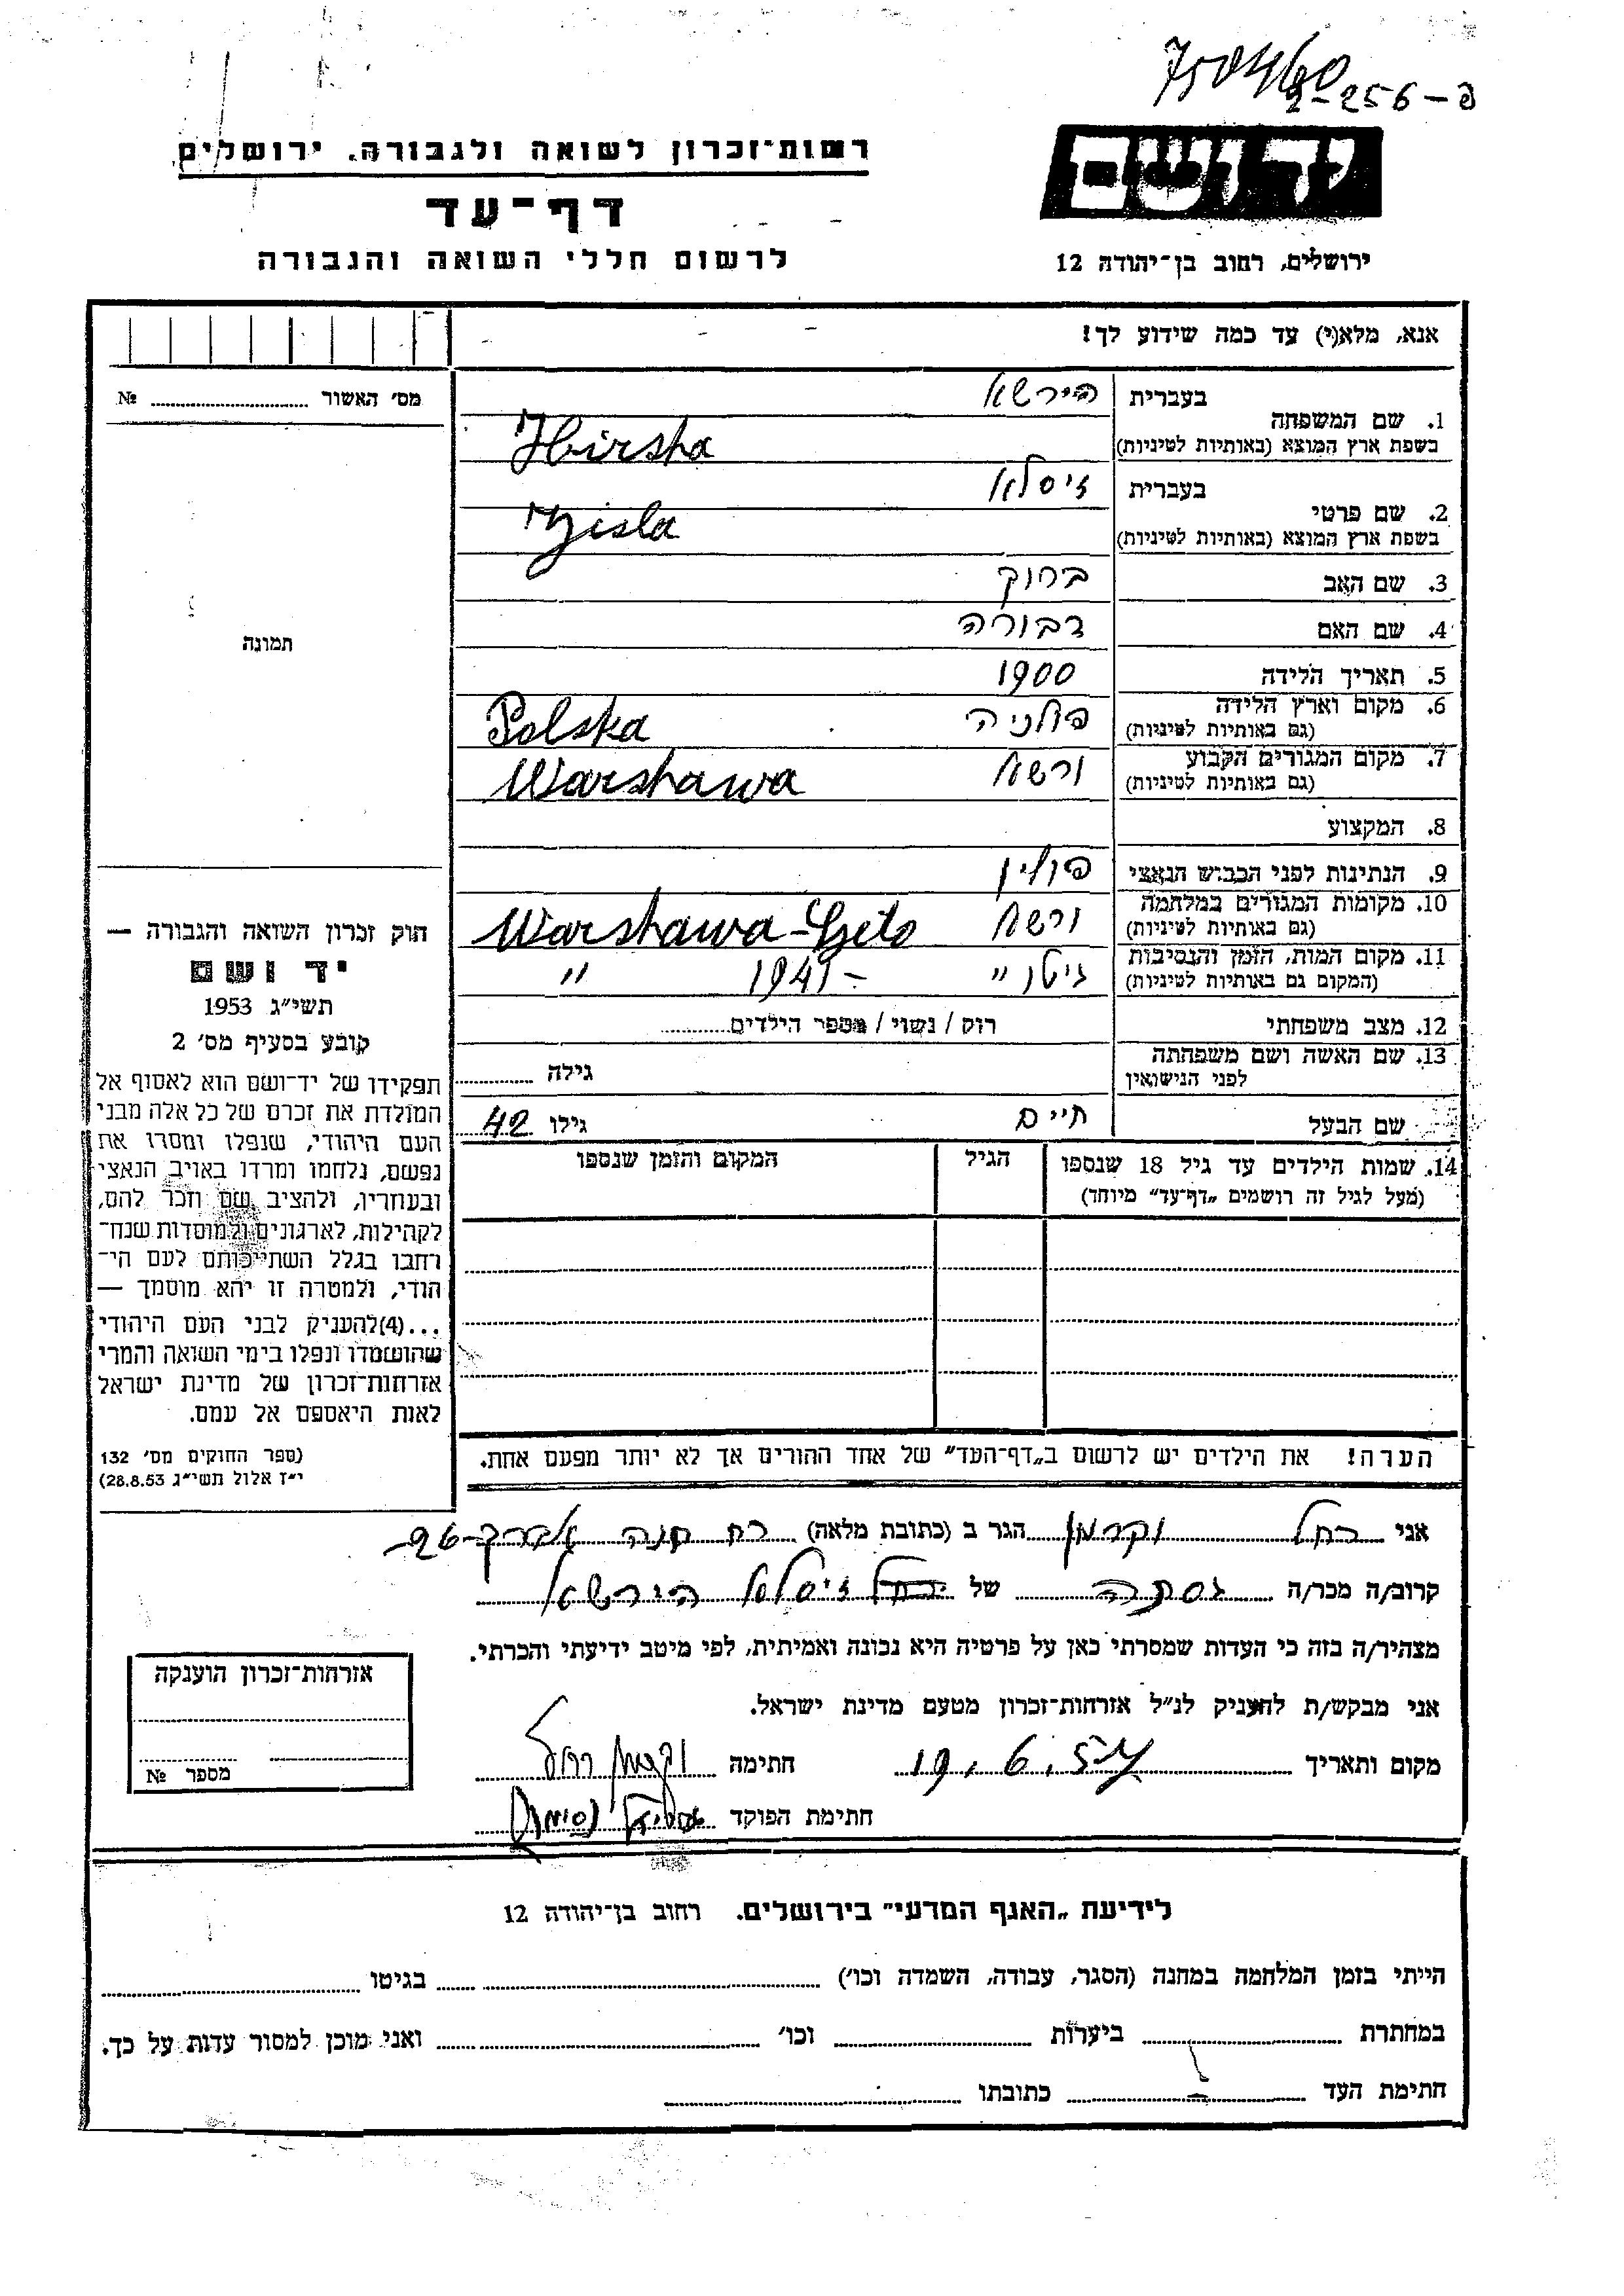 750460
2-256-פ
רשות־זכרון לשואה ולגבורה. ירושלים
יד ושם
דף־עד
לרשום חללי השואה והגבורה
ירושלים, רחוב בן־יהודה 12
אנא, מלא(י) עד כמה שידוע לך!
מס׳ האשור № ........
1. שם המשפחה
בעברית הירשא
בשפת ארץ המוצא (באותיות לטיניות) Hirsha
2. שם פרטי
בעברית זיסלא
בשפת ארץ המוצא (באותיות לטיניות) Zjisla
3. שם האב ברוך
4. שם האם דבורה
5. תאריך הלידה 1900
6. מקום וארץ הלידה (גם באותיות לטיניות) פולניה Polska
7. מקום המגורים הקבוע (גם באותיות לטיניות) ורשא Warshawa
8. המקצוע
9. הנתינות לפני הכבוש הנאצי פולין
10. מקומות המגורים במלחמה (גם באותיות לטיניות) ורשא Warshawa-Geto
11. מקום המות, הזמן והנסיבות (המקום גם באותיות לטיניות) גיטו " 1941- "
12. מצב משפחתי רוק / נשוי / מספר הילדים........
13. שם האשה ושם משפחתה לפני הנישואין גילה ........
שם הבעל חיים גילו 42
14. שמות הילדים עד גיל 18 שנספו
(מעל לגיל זה רושמים „דף־עד" מיוחד)
הגיל
המקום והזמן שנספו
תמונה
חוק זכרון השואה והגבורה —
יד ושם
תשי״ג 1953
קובע בסעיף מס׳ 2
תפקידו של יד־ושם הוא לאסוף אל
המולדת את זכרם של כל אלה מבני
העם היהודי, שנפלו ומסרו את
נפשם, נלחמו ומרדו באויב הנאצי
ובעוזריו, ולהציב שם וזכר להם,
לקהילות, לארגונים ולמוסדות שנח־
רחבו בגלל השתייכותם לעם הי־
הודי, ולמטרה זו יהא מוסמך —
...(4)להעניק לבני העם היהודי
שהושמדו ונפלו בימי השואה והמרי
אזרחות־זכרון של מדינת ישראל
לאות היאספם אל עמם.
(ספר החוקים מס׳ 132
י״ז אלול תשי״ג 28.8.53)
הערה! את הילדים יש לרשום ב„דף־העד" של אחד ההורים אך לא יותר מפעם אחת.
אני רחל וקרמן הגר ב (כתובת מלאה)
קרוב/ה מכר/ה גסתה של זיסלא הירשא
מצהיר/ה בזה כי העדות שמסרתי כאן על פרטיה היא נכונה ואמיתית, לפי מיטב ידיעתי והכרתי.
אני מבקש/ת להעניק לנ״ל אזרחות־זכרון מטעם מדינת ישראל.
מקום ותאריך 19.6.57 חתימה
חתימת הפוקד
אזרחות־זכרון הוענקה
מספר №
לידיעת „האגף המדעי" בירושלים. רחוב בן־יהודה 12
הייתי בזמן המלחמה במחנה (הסגר, עבודה, השמדה וכו׳) ........ בגיטו ........
במחתרת ........ ביערות ........ וכו׳ ........ ואני מוכן למסור עדות על כך.
חתימת העד ........ כתובתו ........